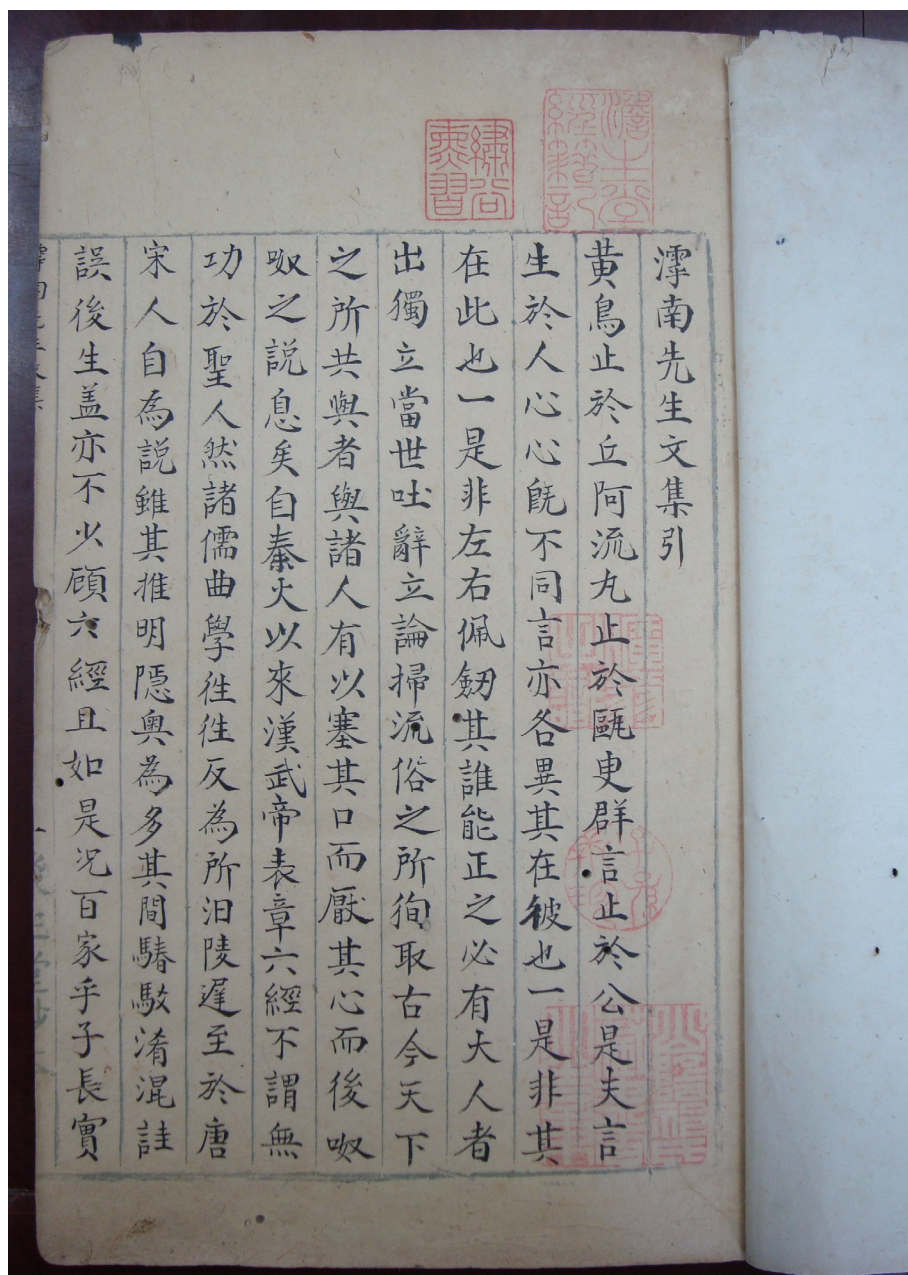 滹南先生文集引
黄鳥止於丘阿流丸止於甌臾群言止於公是夫言
生於人心心旣不同言亦各異其在彼也一是非其
在此也一是非左右佩劒其誰能正之必有大人者
出獨立當世吐辭立論掃流俗之所徇取古今天下
之所共與者與諸人有以塞其口而厭其心而後呶
呶之説息矣自秦火以來漢武帝表章六經不謂無
功於聖人然諸儒曲學徃徃反為所汩陵遲至於唐
宋人自為説雖其推明隱奧為多其間踳駁淆混詿
誤後生盖亦不少顧六經且如是况百家乎子長實
澹生堂經籍記
繡谷熏習